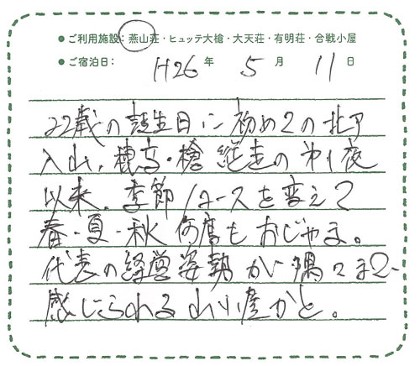 ●ご利用施設:燕山荘・ヒュッテ大槍・大天荘・有明荘・合戦小屋
●ご宿泊日: H26年 5月 11日
22歳の誕生日に初めての北ア
入山、穂高・槍縦走の第1夜
以来、季節/コースを変えて
春・夏・秋何度もおじゃま。
代表の経営姿勢が隅々まで
感じられる山小屋かと。